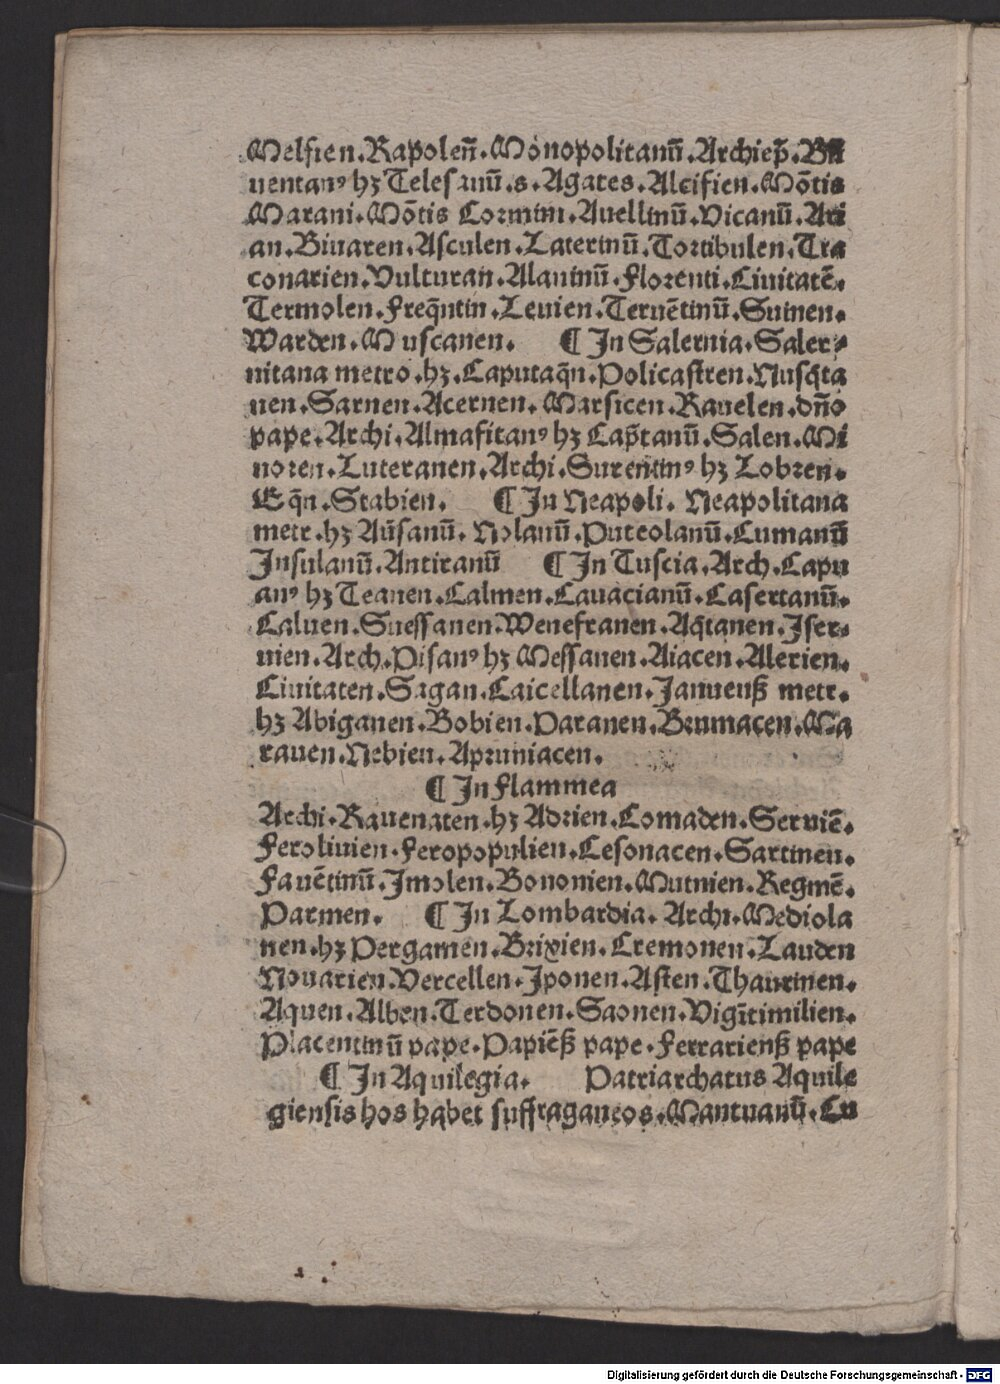 Melfien.Rapoleñ.Monopolitanū.Archiep̄.Be
uentanꝰ hꝫ Telesanū.s.Agates.Alcifien.Mōtis
Marani.Mōtis Cormim.Auellinū.Vicanū.Ari
an.Biuaren.Asculen.Laterinū.Tortibulen.Tra
conarien.Vulturan.Alaninū.Florenti.Ciuitatē.
Termolen.Freq̄ntin.Leuien.Teruētinū.Suinen.
Warden.Muscanen. ¶ In Salernia.Saler⸗
nitana metro.hꝫ.Caputaq̄n.Policastren.Nusq̄ta
uen.Sarnen.Acernen.Marsicen.Rauelen.dño
pape.Archi.Almafitanꝰ hꝫ Cap̄tanū.Salen.Mi
noren.Luteranen.Archi.Surentinꝰ hꝫ Lobren.
Eq̄n.Stabien. ¶ In Neapoli.Neapolitana
metr.hꝫ Aūsanū.Nolanū.Puteolanū.Cumanū
Insulanū.Antiranū ¶ In Tuscia.Arch.Capu
anꝰ hꝫ Teanen.Calmen.Cauacianū.Casertanū.
Caluen.Suessanen.Wenefranen.Aq̄tanen.Iser⸗
nien.Arch.Pisanꝰ hꝫ Messanen.Aiacen.Alerien.
Ciuitaten.Sagan.Caicellanen.Januenß metr.
hꝫ Abiganen.Bobien.Paranen.Brumacen.Ma
rauen.Nebien.Apruniacen.
¶ In Flammea
Archi.Rauenaten.hꝫ Adrien.Comaden.Seruiē.
Feroliuien.Feropopulien.Cesonacen.Sartinen.
Fauētinū.Imolen.Bononien.Mutnien.Regmē.
Parmen. ¶ In Lombardia.Archi.Mediola
nen.hꝫ Pergamen.Brixien.Cremonen.Lauden
Nouarien.Vercellen.Iponen.Asten.Thaurinen.
Aquen.Alben.Terdonen.Saonen.Vigītimilien.
Placentinū pape.Papiēß pape.Ferrarienß pape
¶ In Aquilegia. Patriarchatus Aquile
giensis hos habet suffraganeos.Mantuanū.Cu
Digitalisierung gefördert durch die Deutsche Forschungsgemeinschaft - DFG